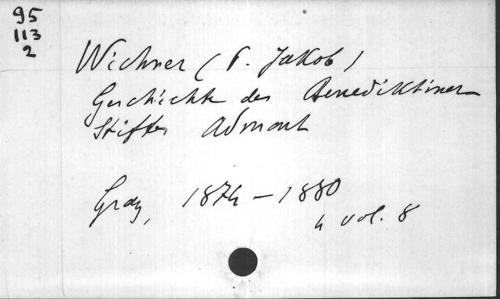 95
113
2
Wichner (P. Jakob)
Geschichte des Benediktiner
Stiftes Admont
Graz, 1874 – 1880
4 vol. 8